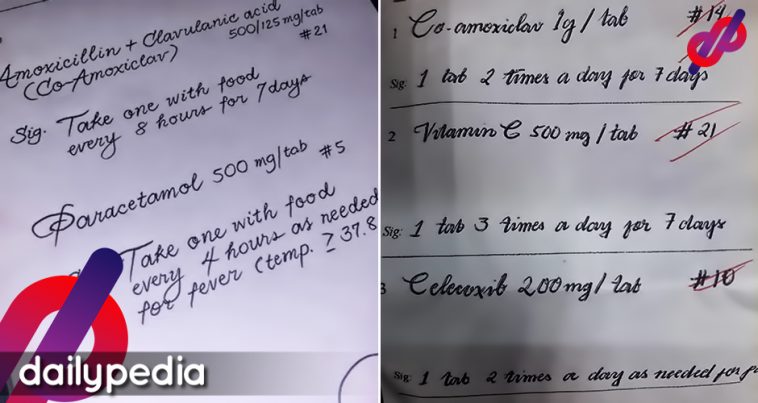 Amoxicillin + Clavulanic acid
500/125 mg/tab
(Co-Amoxiclav)
#21
Sig. Take one with food
every 8 hours for 7days
Paracetamol 500 mg/tab #5
Take one with food
every 4 hours as needed
for fever (temp. ≥ 37.8
dailypedia
1 Co-amoxiclav 1g/tab #14
Sig: 1 tab 2 times a day for 7 days
2 Vitamin C 500 mg/tab #21
Sig: 1 tab 3 times a day for 7 days
3 Celecoxib 200mg/tab #10
Sig: 1 tab 2 times a day as needed for